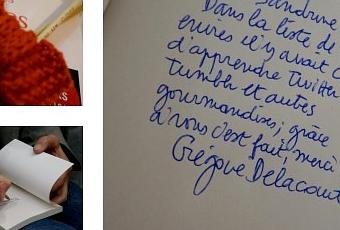 Sandrine
Dans la liste de
envies il y avait c
d'apprendre Twitter
Tumblr et autres
gourmandises; grâce
à vous c'est fait; merci
Grégoire Delacourt